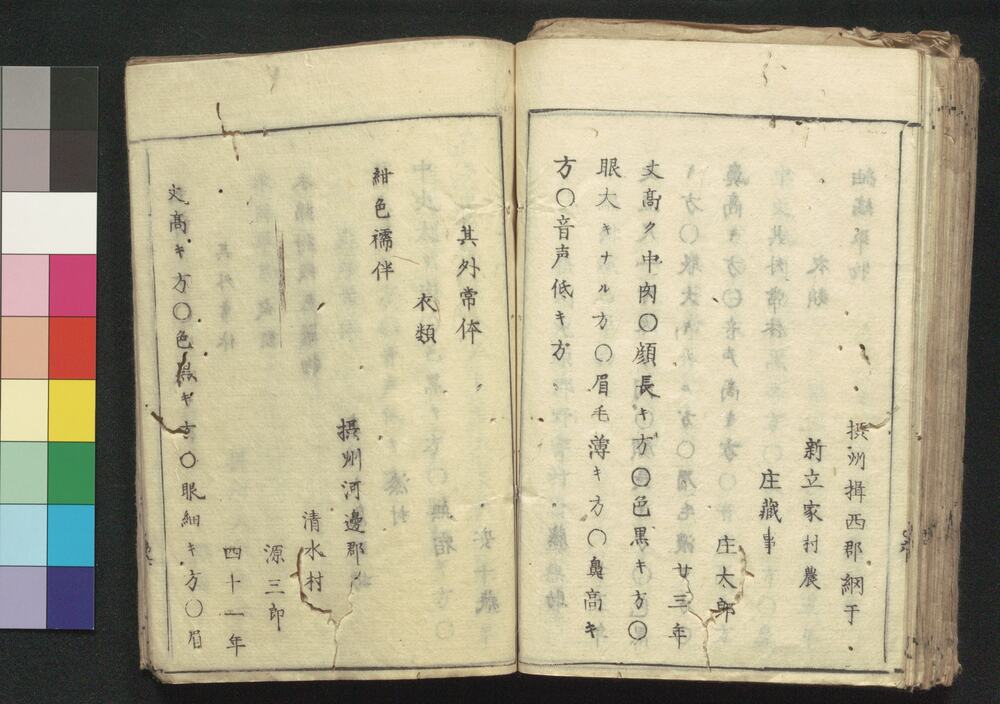 摂州揖西郡網干
新立家村農
庄藏事
庄太郎
廿三年
丈高ク中肉〇顔長キ方〇色黒キ方〇
眼大キナル方〇眉毛薄キ方〇鼻高キ
方〇音声低キ方
其外常体
衣類
紺色襦伴
摂州河邊郡
清水村
源三郎
四十一年
丈高キ方〇色黒キ方〇眼細キ方〇眉